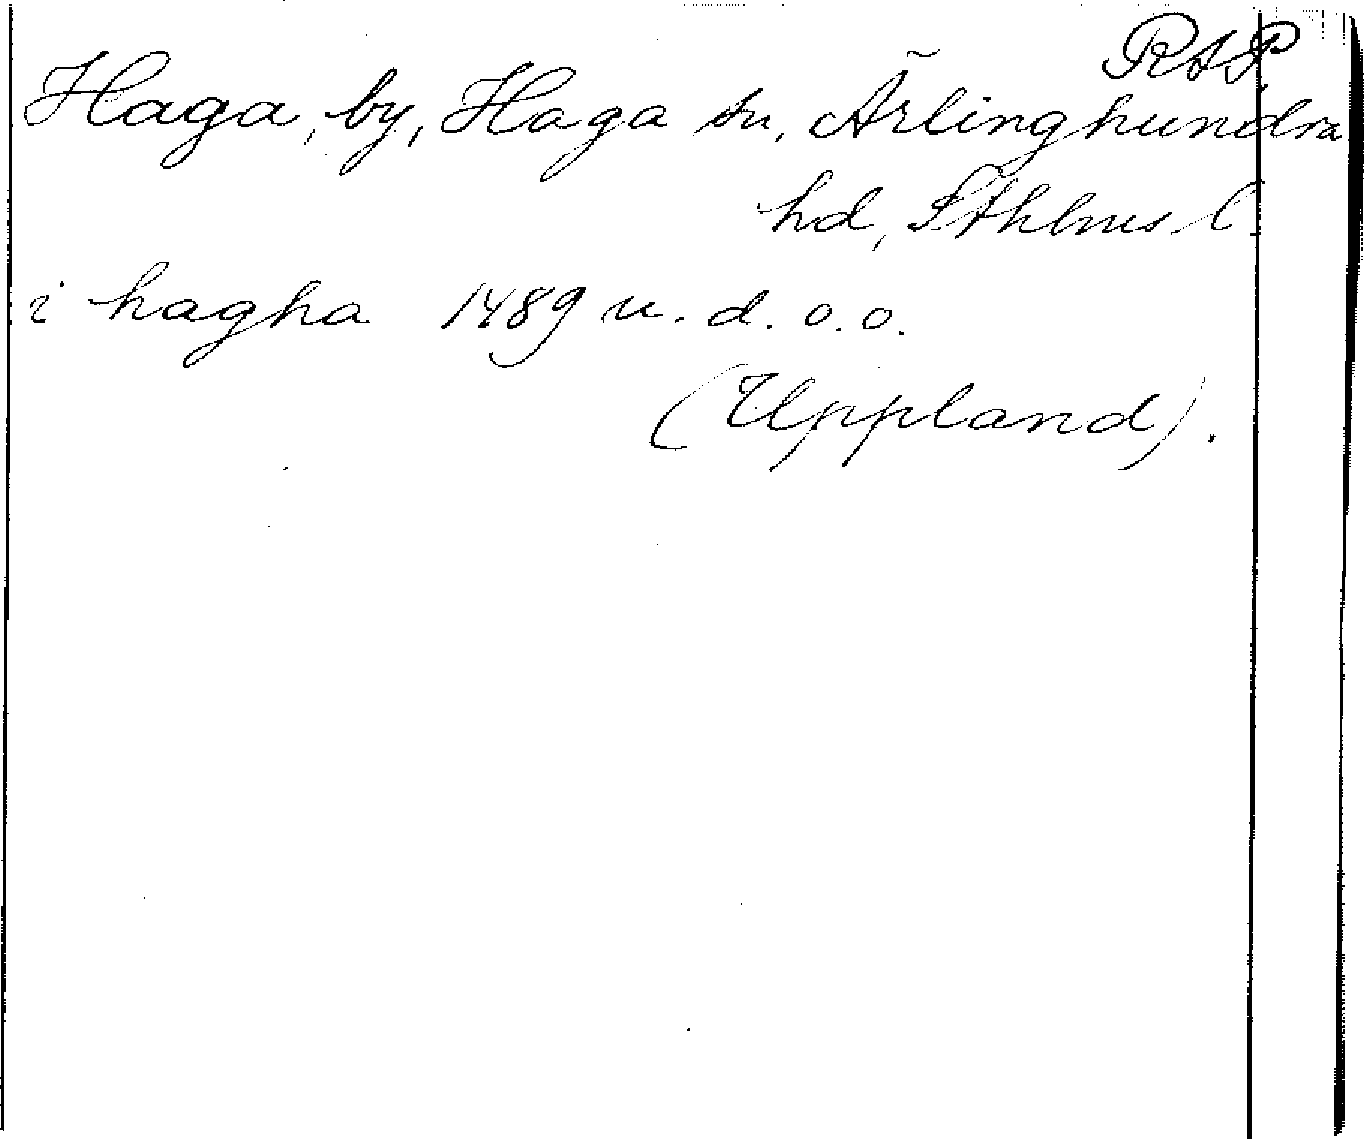 RAP
Haga, by, Haga sn, Ärlinghundra
hd, Sthlms l.
i hagha 1489 u. d. o. o.
(Uppland).